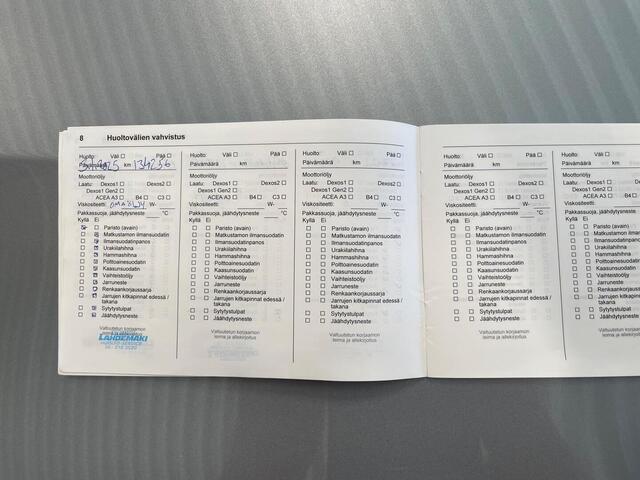 8 Huoltovälien vahvistus
Huolto: Väli Pää
Päivämäärä km 134256
Moottoriöljy
Laatu: Dexos1 Dexos2
Dexos1 Gen2
ACEA A3 B4 C3
Viskositeetti: W-
Pakkassuoja, jäähdytysneste °C
Kyllä Ei
Paristo (avain)
Matkustamon ilmansuodatin
Ilmansuodatinpanos
Urakilahihna
Hammashihna
Polttoainesuodatin
Kaasunsuodatin
Vaihteistoöljy
Jarruneste
Renkaankorjaussarja
Jarrujen kitkapinnat edessä /
takana
Sytytystulpat
Jäähdytysneste
Valtuutetun korjaamon
leima ja allekirjoitus
LAHDEMÄKI
Huolto: Väli Pää
Päivämäärä km
Moottoriöljy
Laatu: Dexos1 Dexos2
Dexos1 Gen2
ACEA A3 B4 C3
Viskositeetti: W-
Pakkassuoja, jäähdytysneste °C
Kyllä Ei
Paristo (avain)
Matkustamon ilmansuodatin
Ilmansuodatinpanos
Urakilahihna
Hammashihna
Polttoainesuodatin
Kaasunsuodatin
Vaihteistoöljy
Jarruneste
Renkaankorjaussarja
Jarrujen kitkapinnat edessä /
takana
Sytytystulpat
Jäähdytysneste
Valtuutetun korjaamon
leima ja allekirjoitus
Huolto: Väli Pää
Päivämäärä km
Moottoriöljy
Laatu: Dexos1 Dexos2
Dexos1 Gen2
ACEA A3 B4 C3
Viskositeetti: W-
Pakkassuoja, jäähdytysneste °C
Kyllä Ei
Paristo (avain)
Matkustamon ilmansuodatin
Ilmansuodatinpanos
Urakilahihna
Hammashihna
Polttoainesuodatin
Kaasunsuodatin
Vaihteistoöljy
Jarruneste
Renkaankorjaussarja
Jarrujen kitkapinnat edessä /
takana
Sytytystulpat
Jäähdytysneste
Valtuutetun korjaamon
leima ja allekirjoitus
Huolto: Väli Pää
Päivämäärä km
Moottoriöljy
Laatu: Dexos1 Dexos2
Dexos1 Gen2
ACEA A3 B4 C3
Viskositeetti: W-
Pakkassuoja, jäähdytysneste °C
Kyllä Ei
Paristo (avain)
Matkustamon ilmansuodatin
Ilmansuodatinpanos
Urakilahihna
Hammashihna
Polttoainesuodatin
Kaasunsuodatin
Vaihteistoöljy
Jarruneste
Renkaankorjaussarja
Jarrujen kitkapinnat edessä /
takana
Sytytystulpat
Jäähdytysneste
Valtuutetun korjaamon
leima ja allekirjoitus
Huolto: Väli
Päivämäärä km
Moottoriöljy
Laatu: Dexos1
Dexos1 Gen2
ACEA A3
Viskositeetti:
Pakkassuoja, jäähdytys
Kyllä Ei
Paristo (avain)
Matkustamon
Ilmansuodatin
Urakilahihna
Hammashihna
Polttoainesuo
Kaasunsuoda
Vaihteistoöljy
Jarruneste
Renkaankorja
Jarrujen kitka
takana
Sytytystulpat
Jäähdytysnes
Valtuutetun
leima ja al